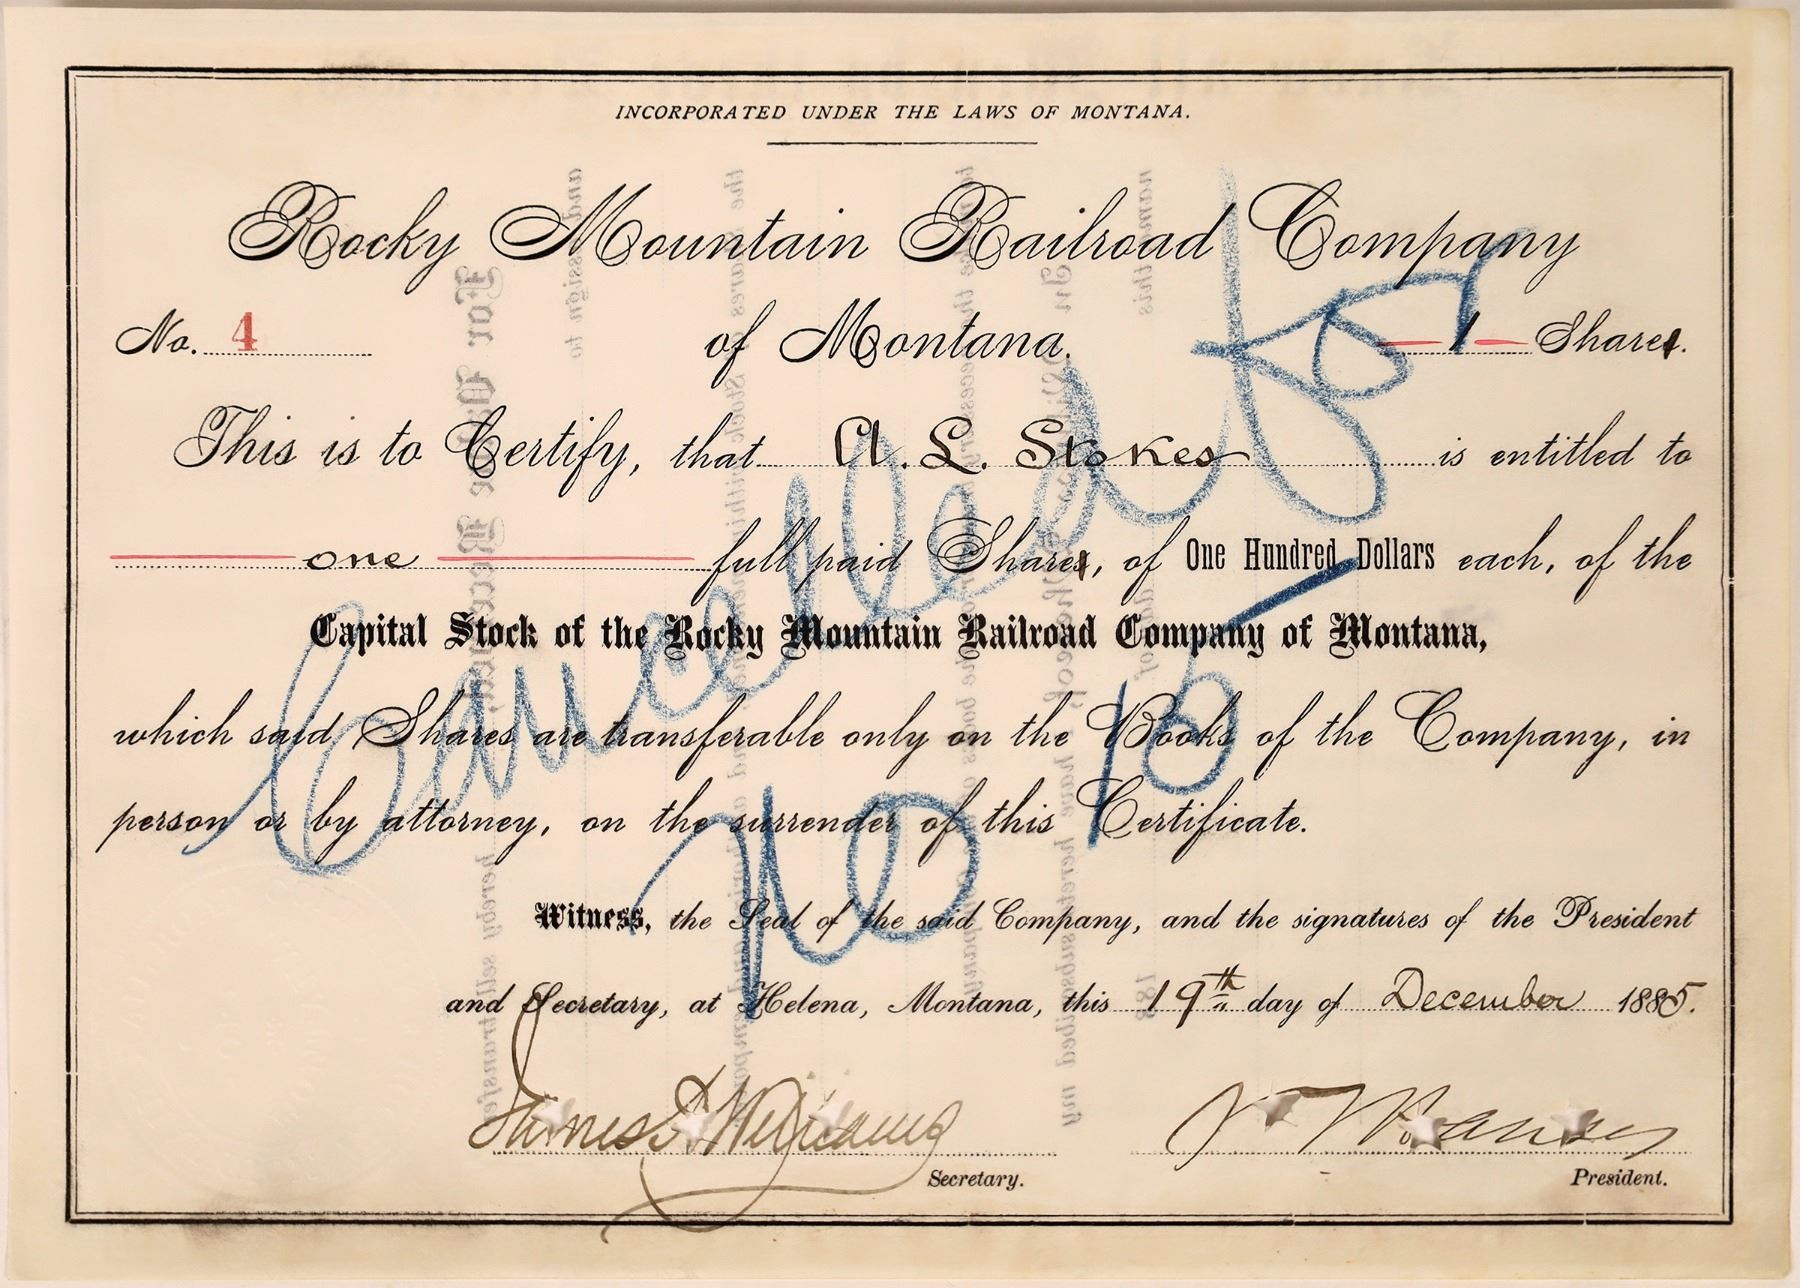 INCORPORATED UNDER THE LAWS OF MONTANA.
Rocky Mountain Railroad Company
No. 4 of Montana. 1 Share.
This is to Certify, that A. L. Stokes is entitled to
one full paid Share, of One Hundred Dollars each, of the
Capital Stock of the Rocky Mountain Railroad Company of Montana,
which said Shares are transferable only on the Books of the Company, in
person or by attorney, on the surrender of this Certificate.
Witness, the Seal of the said Company, and the signatures of the President
and Secretary, at Helena, Montana, this 19th day of December 1885.
James Williams
Secretary.
President.
Cancelled
No 15